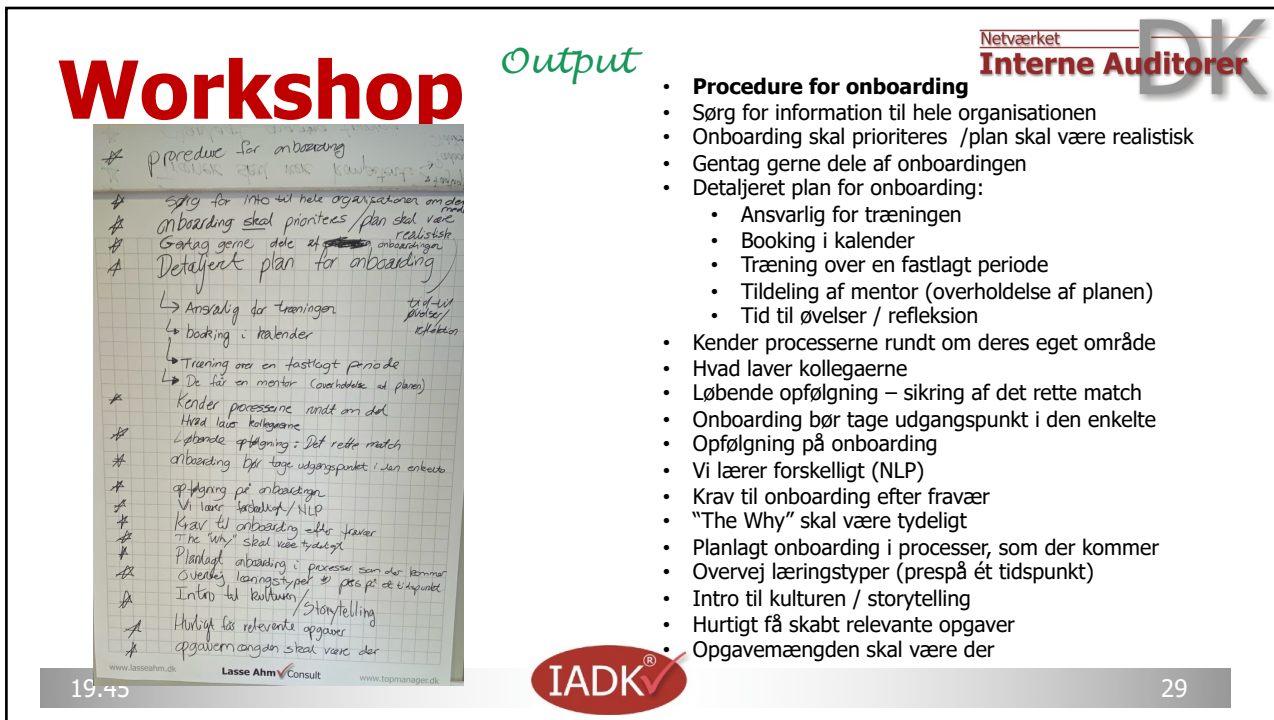 Workshop
Output
Netværket
Interne Auditorer
DK
• Procedure for onboarding
• Sørg for information til hele organisationen
• Onboarding skal prioriteres /plan skal være realistisk
• Gentag gerne dele af onboardingen
• Detaljeret plan for onboarding:
• Ansvarlig for træningen
• Booking i kalender
• Træning over en fastlagt periode
• Tildeling af mentor (overholdelse af planen)
• Tid til øvelser / refleksion
• Kender processerne rundt om deres eget område
• Hvad laver kollegaerne
• Løbende opfølgning – sikring af det rette match
• Onboarding bør tage udgangspunkt i den enkelte
• Opfølgning på onboarding
• Vi lærer forskelligt (NLP)
• Krav til onboarding efter fravær
• “The Why” skal være tydeligt
• Planlagt onboarding i processer, som der kommer
• Overvej læringstyper (prespå ét tidspunkt)
• Intro til kulturen / storytelling
• Hurtigt få skabt relevante opgaver
• Opgavemængden skal være der
procedure for onboarding
Sørg for into til hele organisationen om den
onboarding skal prioriteres /plan skal være
realistisk
Gentag gerne dele af onboardingen
Detaljeret plan for onboarding
Ansvarlig for træningen
tid til
øvelser/
refleksion
booking i kalender
Træning over en fastlagt periode
De får en mentor (overholdelse af planen)
Kender processerne rundt om
Hvad laver kollegaerne
Løbende opfølgning: Det rette match
onboarding bør tage udgangspunkt i den enkelte
opfølgning på onboardingen
Vi lærer forskelligt/NLP
Krav til onboarding efter fravær
The "Why" skal være tydeligt
Planlagt onboarding i processer som der kommer
Overvej læringstyper pres på et tidspunkt
Intro til kulturen /Storytelling
Hurtigt få relevante opgaver
opgavemængden skal være der
www.lasseahm.dk
Lasse Ahm Consult
www.topmanager.dk
19.45
IADK®
29